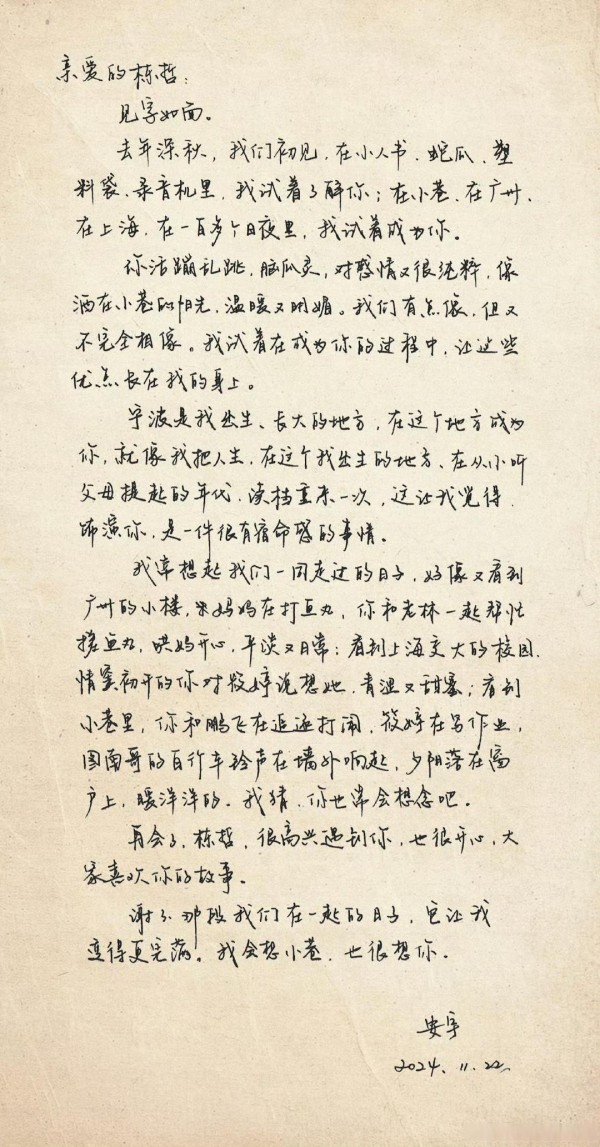 亲爱的栋哲：
见字如面。
去年深秋，我们初见，在小人书、蛇瓜、塑
料袋、录音机里，我试着了解你；在小巷、在广州、
在上海，在一百多个日夜里，我试着成为你。
你活蹦乱跳，脑瓜灵，对感情又很纯粹，像
洒在小巷的阳光，温暖又明媚。我们有点像，但又
不完全相像。我试着在成为你的过程中，让这些
优点长在我的身上。
宁波是我出生、长大的地方，在这个地方成为
你，就像我把人生，在这个我出生的地方、在从小听
父母提起的年代，读档重来一次，这让我觉得，
饰演你，是一件很有宿命感的事情。
我常想起我们一同走过的日子，好像又看到
广州的小楼，宋妈妈在打鱼丸，你和老林一起帮忙
搓鱼丸，哄妈开心，平淡又日常；看到上海交大的校园，
情窦初开的你对筱婷说想她，青涩又甜蜜；看到
小巷里，你和鹏飞在追逐打闹，筱婷在写作业，
图南哥的自行车铃声在墙外响起，夕阳落在窗
户上，暖洋洋的。我猜，你也常会想念吧。
再会了，栋哲，很高兴遇到你，也很开心，大
家喜欢你的故事。
谢了那段我们在一起的日子，它让我
变得更完满。我会想小巷，也很想你。
安宇
2024.11.22